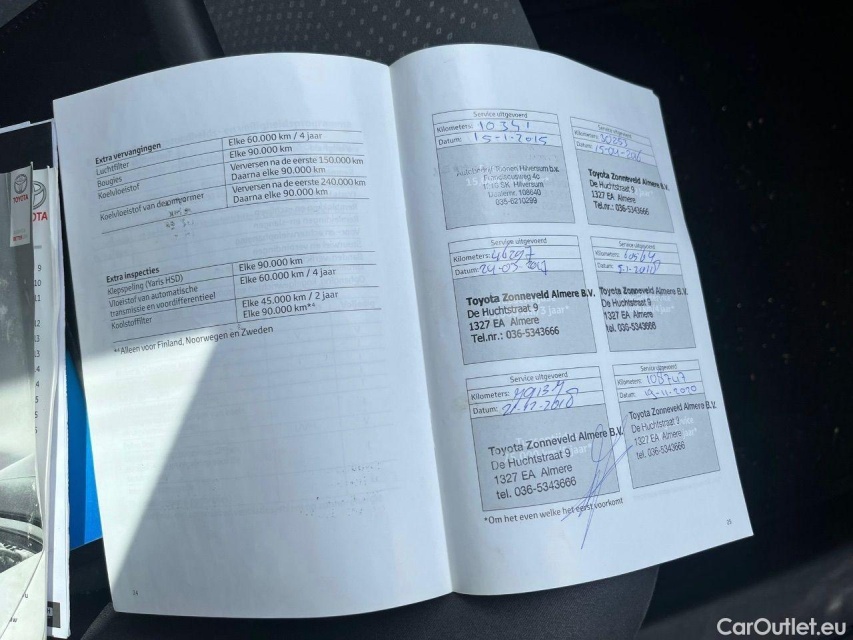 Extra vervangingen
Luchtfilter
Elke 60.000 km / 4 jaar
Bougies
Elke 90.000 km
Koelvloeistof
Verversen na de eerste 150.000 km
Daarna elke 90.000 km
Koelvloeistof van de omvormer
Verversen na de eerste 240.000 km
Daarna elke 90.000 km
Extra inspecties
Klepspeling (Yaris HSD)
Elke 90.000 km
Vloeistof van automatische
transmissie en voordifferentieel
Elke 60.000 km / 4 jaar
Koolstoffilter
Elke 45.000 km / 2 jaar
Elke 90.000 km*⁴
*⁴ Alleen voor Finland, Noorwegen en Zweden
Service uitgevoerd
Kilometers: 10341
Datum: 15-1-2015
Hilversum b.v.
Hilversum
035-6210299
Service uitgevoerd
Kilometers:
Datum:
Toyota Zonneveld Almere B.V.
De Huchtstraat 9
1327 EA Almere
Tel.nr.: 036-5343666
Service uitgevoerd
Kilometers:
Datum:
Toyota Zonneveld Almere B.V.
De Huchtstraat 9
1327 EA Almere
Tel.nr.: 036-5343666
Service uitgevoerd
Kilometers:
Datum:
Toyota Zonneveld Almere B.V.
De Huchtstraat 9
1327 EA Almere
tel. 036-5343666
Service uitgevoerd
Kilometers:
Datum:
Toyota Zonneveld Almere B.V.
De Huchtstraat 9
1327 EA Almere
tel. 036-5343666
Service uitgevoerd
Kilometers: 108747
Datum: 19-11-2020
Toyota Zonneveld Almere B.V.
De Huchtstraat 9
1327 EA Almere
tel. 036-5343666
*Om het even welke het eerst voorkomt
24
25
TOYOTA
CarOutlet.eu